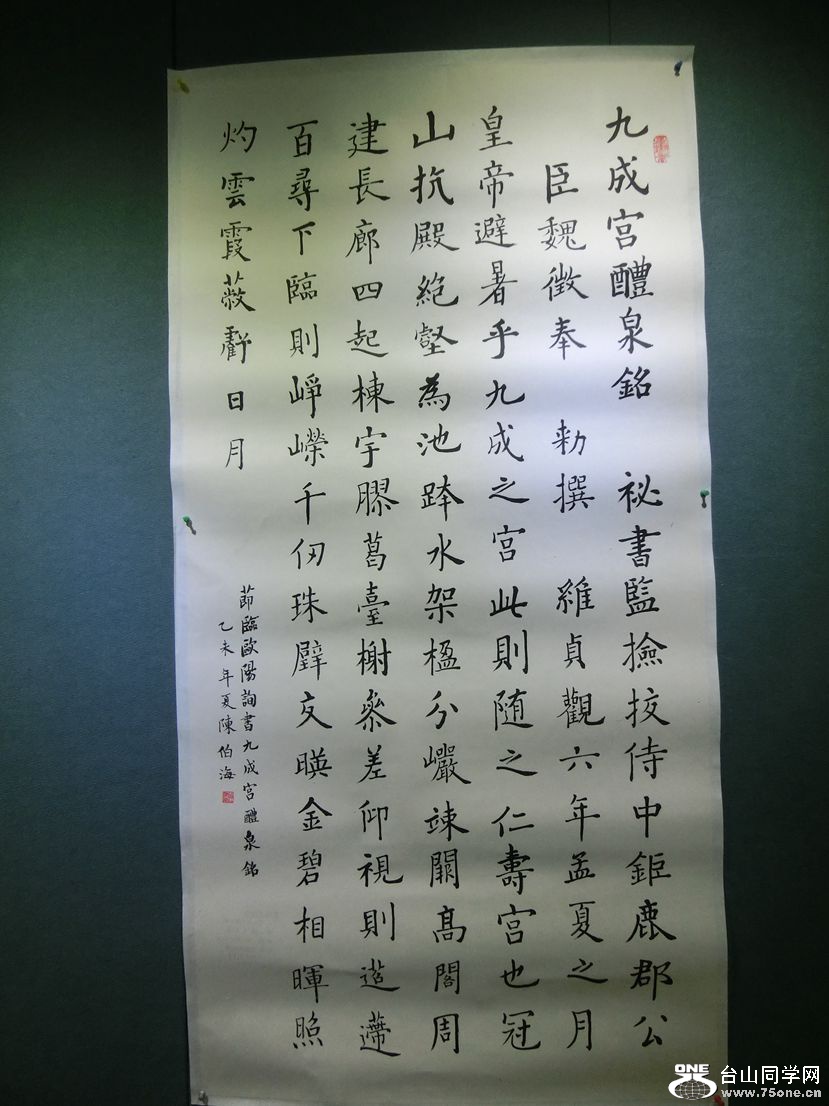 九成宮醴泉銘 祕書監撿挍侍中鉅鹿郡公
臣魏徵奉 勑撰 維貞觀六年孟夏之月
皇帝避暑乎九成之宮此則随之仁壽宮也冠
山抗殿絶壑為池跨水架楹分巗竦闕髙閣周
建長廊四起棟宇膠葛臺榭叅差仰視則迢遰
百尋下臨則崢嶸千仞珠璧交暎金碧相暉照
灼雲霞蔽虧日月
節臨歐陽詢書九成宮醴泉銘
乙未年夏陳伯海
ONE
台山同学网
www.75one.cn